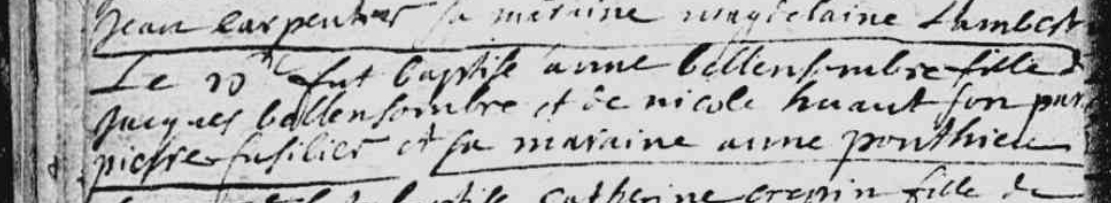 jean carpentier sa maraine magdelaine Lambert
Le 20e fut baptise anne bellensombre fille de
jacques bellensombre et de nicole huaut son par
pierre fusilier et sa maraine anne ponthieu
catherine crepin fille de